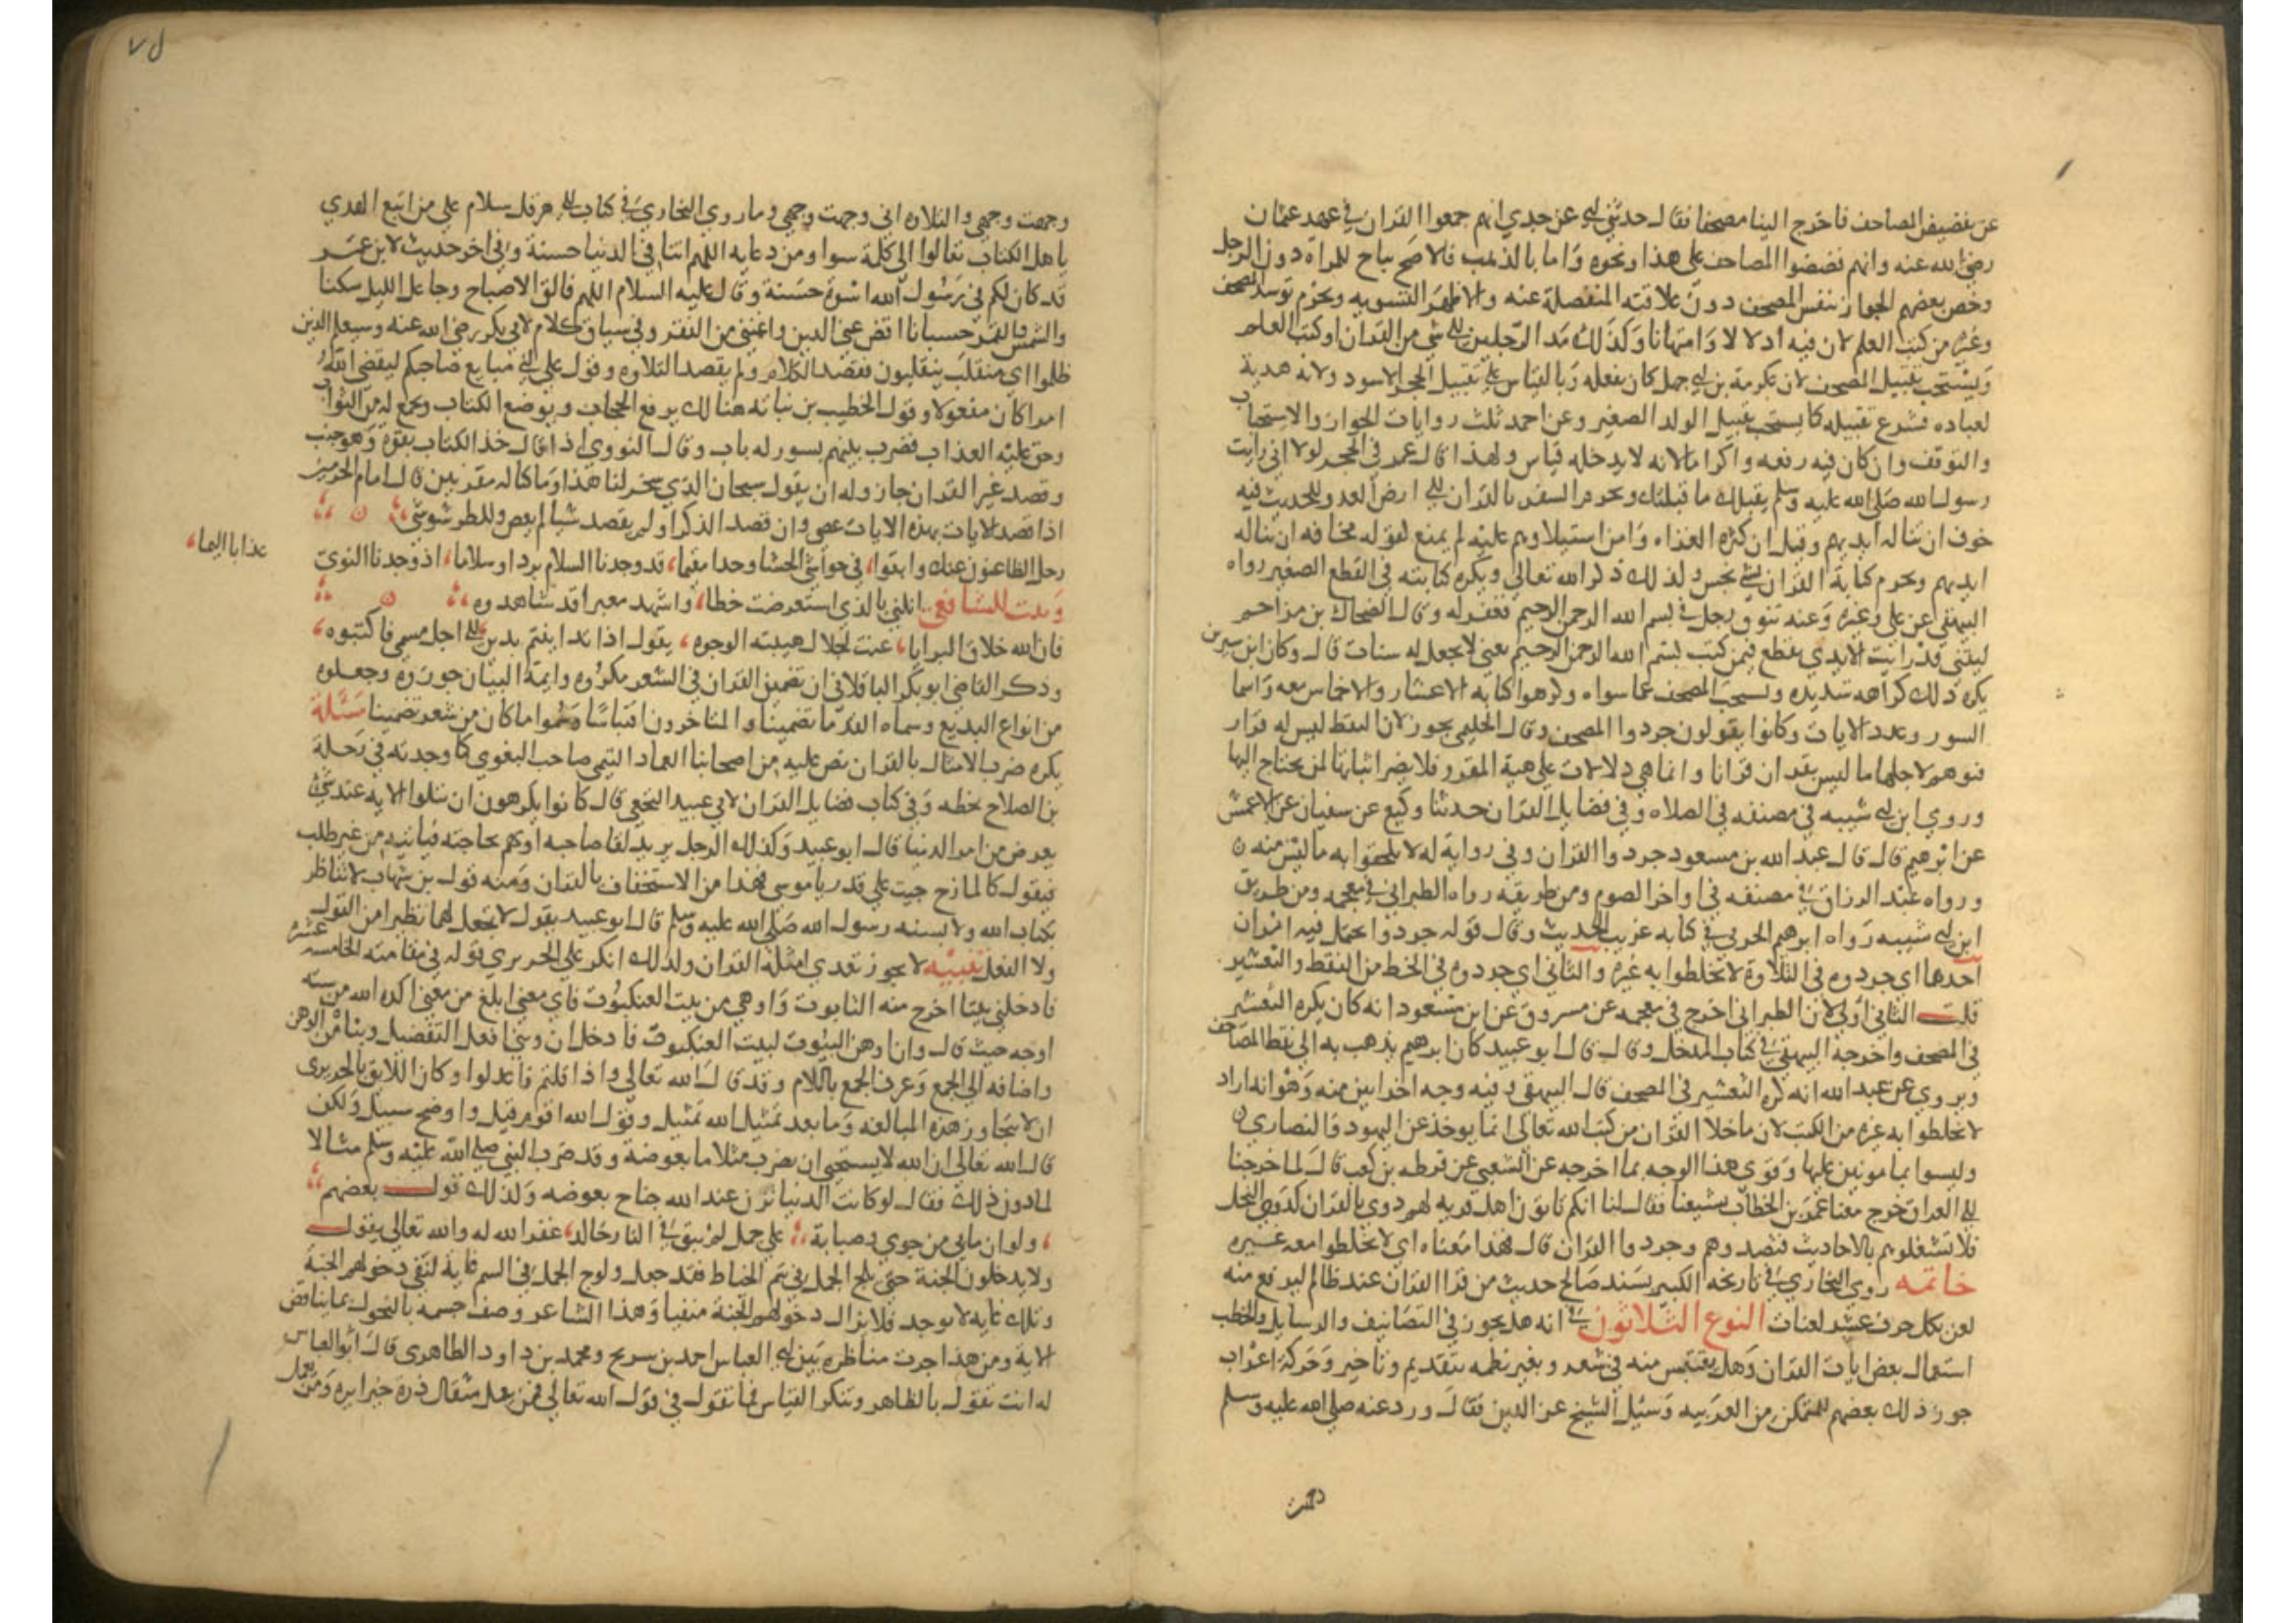 عن تفضيض المصاحف فاخرج الينا مصحفا فقال حدثني ابي عن جدي انهم جمعوا القران في عهد عثمان
رضي الله عنه وانهم فضضوا المصاحف على هذا ونحوه واما بالذهب فالاصح يباح للمراة دون الرجل
وخص بعضهم الجواز بنفس المصحف دون علاقته المنفصلة عنه والاظهر التسويه ويحرم توسد المصحف
وغيره من كتب العلم لان فيه اذلالا وامتهانا وكذلك مد الرجلين الى شي من القران او كتب العلم
ويستحب تقبيل المصحف لان عكرمة بن ابي جهل كان يفعله وبالقياس على تقبيل الحجر الاسود ولانه هدية
لعباده فشرع تقبيله كما يستحب تقبيل الولد الصغير وعن احمد ثلث روايات الجواز والاستحباب
والتوقف وان كان فيه رفعه واكرام لانه لا يدخله قياس ولهذا قال عمر في الحجر لولا اني رايت
رسول الله صلى الله عليه وسلم يقبلك ما قبلتك ويحرم السفر بالقران الى ارض العدو للحديث فيه
خوف ان تناله ايديهم وقيل ان كثر الغزاه وامن استيلاوهم عليه لم يمنع لقوله مخافه ان تناله
ايديهم ويحرم كتابة القران بشي نجس ولذلك ذكر الله تعالى ويكره كتابته في القطع الصغير رواه
البيهقي عن علي وغيره وعنه تنوق رجل في بسم الله الرحمن الرحيم فغفر له وقال الضحاك بن مزاحم
ليتني قد رايت الايدي تقطع فيمن كتب بسم الله الرحمن الرحيم يعني لا يجعل له سنات قال وكان ابن سيرين
يكره ذلك كراهه شديده ويستحب المصحف عما سواه وكرهوا كتابه الاعشار والاخماس معه واسما
السور وعدد الايات وكانوا يقولون جردوا المصحف وقال الحليمي يجوز لان النقط ليس له قرار
فتوهم لاجلها ما ليس بقران قرانا وانما هي دلالات على هية المقرو فلا يضر اثباتها لمن يحتاج اليها
وروي ابن ابي شيبه في مصنفه في الصلاه وفي فضايل القران حدثنا وكيع عن سفيان عن الاعمش
عن ابرهيم قال قال عبد الله بن مسعود جردوا القران وفي رواية له لا تلحقوا به ما ليس منه
ورواه عبد الرزاق في مصنفه في اواخر الصوم ومن طريقه رواه الطبراني في معجمه ومن طريق
ابن ابي شيبه رواه ابرهيم الحربي في كتابه غريب الحديث وقال قوله جردوا يحتمل فيه امران
احدهما اي جردوه في التلاوة لا تخلطوا به غيره والثاني اي جردوه في الخط من النقط والتعشير
قلت الثاني اولى لان الطبراني اخرج في معجمه عن مسروق عن ابن مسعود انه كان يكره التعشير
في المصحف واخرجه البيهقي في كتاب المدخل وقال قال ابو عبيد كان ابرهيم يذهب به الى نقط المصاحف
ويروي عن عبد الله انه كره التعشير في المصحف قال البيهقي وفيه وجه اخر ابين منه وهو انه اراد
لا تخلطوا به غيره من الكتب لان ما خلا القران من كتب الله تعالى انما يوخذ عن اليهود والنصاري
وليسوا بمامونين عليها وقوي هذا الوجه بما اخرجه عن الشعبي عن قرظه بن كعب قال لما خرجنا
الى العراق خرج معنا عمر بن الخطاب يشيعنا فقال لنا انكم تاتون اهل قريه لهم دوي بالقران كدوي النحل
فلا تشغلوهم بالاحاديث فتصدوهم وجردوا القران قال فهذا معناه اي لا تخلطوا معه غيره
خاتمه روي البخاري في تاريخه الكبير بسند صالح حديث من قرا القران عند ظالم ليرفع منه
لعن بكل حرف عشر لعنات النوع الثلاثون في انه هل يجوز في التصانيف والرسايل والخطب
استعمال بعض ايات القران وهل يقتبس منه في شعر وبغير نظمه بتقديم وتاخير وحركة اعراب
جوز ذلك بعضهم للمتمكن من العربيه وسئل الشيخ عز الدين فقال ورد عنه صلى الله عليه وسلم
وجهت
وجهت وجهي والتلاوه اني وجهت وجهي وما روي البخاري في كتاب الى هرقل سلام على من اتبع الهدي
يا هل الكتاب تعالوا الى كلمة سوا ومن دعايه اللهم اتنا في الدنيا حسنة وفي اخر حديث لابن عمر
قد كان لكم في رسول الله اسوة حسنة وقال عليه السلام اللهم فالق الاصباح وجاعل الليل سكنا
والشمس والقمر حسبانا اقض عني الدين واغنني من الفقر وفي سياق كلام لابي بكر رضي الله عنه وسيعلم الذين
ظلموا اي منقلب ينقلبون فقصد الكلام ولم يقصد التلاوه وقول علي اني مبايع صاحبكم ليقضي الله
امرا كان مفعولا وقول الخطيب بن نباته هنالك يرفع الحجاب ويوضع الكتاب ويجمع له من الثواب
وحق عليه العذاب فضرب بينهم بسور له باب وقال النووي اذا قال خذ الكتاب بقوة وهو جنب
وقصد غير القران جاز وله ان يقول سبحان الذي سخر لنا هذا وما كنا له مقرنين قال امام الحرمين
اذا قصد الايات بهذه الايات عصى وان قصد الذكر اولم يقصد شيا لم يعص وللطرشوشي
رحل الظاعنون عنك وابقوا في حواشي الحشا وجدا مقيما قد وجدنا السلام بردا وسلاما اذ وجدنا النوي
عذابا اليما
وبيت للشافعي انلني بالذي استعرضت خطا واشهد معبرا قد شاهدوه
فان الله خلاق البرايا عنت لجلال هيبته الوجوه يقول اذا تداينتم بدين الى اجل مسمى فاكتبوه
وذكر القاضي ابو بكر الباقلاني ان تضمين القران في الشعر مكروه وايمة البيان جوزوه وجعلوه
من انواع البديع وسماه القدما تضمينا والمتاخرون اقتباسا وسموا ما كان من شعر تضمينا مسئلة
يكره ضرب الامثال بالقران نص عليه من اصحابنا العماد التيمي صاحب البغوي كما وجدته في رحلة
بن الصلاح بخطه وفي كتاب فضايل القران لابي عبيد النخعي قال كانوا يكرهون ان تتلوا الايه عند شي
يعرض من امر الدنيا قال ابو عبيد وكذلك الرجل يريد لقا صاحبه او يهم بحاجته فياتيه من غير طلب
فيقول كالمازح جيت على قدر يا موسى فهذا من الاستخفاف بالقران ومنه قول بن شهاب لا تناظر
بكتاب الله ولا بسنه رسول الله صلى الله عليه وسلم قال ابو عبيد يقول لا تجعل لهما نظيرا من القول
ولا الفعل تنبيه لا يجوز تعدي امثلة القران ولذلك انكر على الحريري قوله في مقامته الخامسه عشره
فادخلني بيتا اخرج منه التابوت واوهي من بيت العنكبوت فاي معنى ابلغ من معنى اكده الله من سته
اوجه حيث قال وان اوهن البيوت لبيت العنكبوت فادخل ان وبني افعل التفضيل وبناه من الوهن
واضافه الى الجمع وعرف الجمع باللام وقد قال الله تعالى واذا قلتم فاعدلوا وكان اللايق بالحريري
ان لا يتجاوز هذه المبالغه وما بعد تمثيل الله تمثيل وقول الله اقوم قيل واوضح سبيل ولكن
قال الله تعالى ان الله لا يستحيي ان يضرب مثلا ما بعوضة وقد ضرب النبي صلى الله عليه وسلم مثالا
لما دون ذلك فقال لو كانت الدنيا تزن عند الله جناح بعوضه ولذلك قول بعضهم
ولو ان ما بي من جوي وصبابة على جمل لم يبق في النار خالد غفر الله له والله تعالى يقول
ولا يدخلون الجنة حتى يلج الجمل في سم الخياط فقد جعل ولوج الجمل في السم غاية لنفي دخولهم الجنة
وتلك غايه لا توجد فلا يزال دخولهم الجنة منفيا وهذا الشاعر وصف جسمه بالنحول بما يناقض
الاية ومن هذا جرت مناظره بين ابي العباس احمد بن سريج ومحمد بن داود الظاهري قال ابو العباس
له انت تقول بالظاهر وتنكر القياس فما تقول في قول الله تعالى فمن يعمل مثقال ذرة خيرا يره ومن يعمل